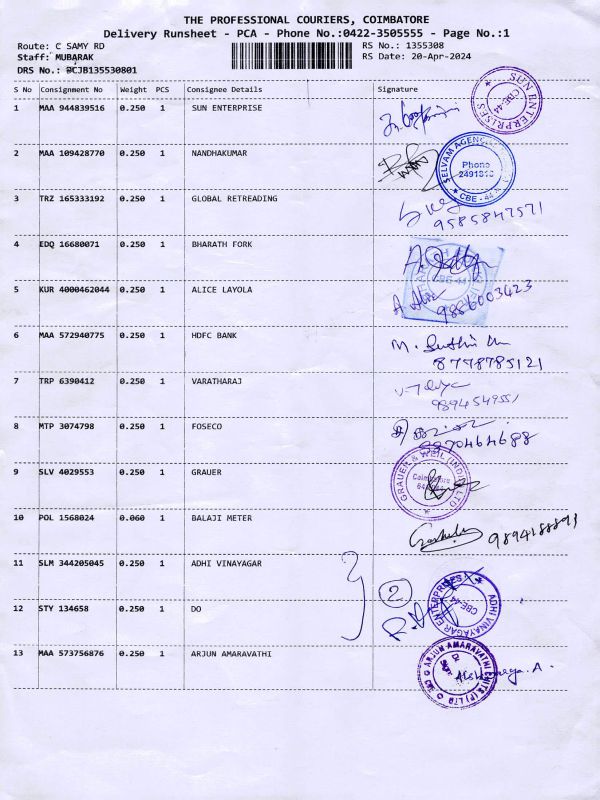 THE PROFESSIONAL COURIERS, COIMBATORE
Delivery Runsheet - PCA - Phone No.:0422-3505555 - Page No.:1
Route: C SAMY RD RS No.: 1355308
Staff: MUBARAK RS Date: 20-Apr-2024
DRS No.: BCJB135530801
S No Consignment No Weight PCS Consignee Details Signature
1 MAA 944839516 0.250 1 SUN ENTERPRISE
SUN ENTERPRISES CBE-44
2 MAA 109428770 0.250 1 NANDHAKUMAR
SELVAM Phone CBE - 44
3 TRZ 165333192 0.250 1 GLOBAL RETREADING
9585847571
4 EDQ 16680071 0.250 1 BHARATH FORK
5 KUR 4000462044 0.250 1 ALICE LAYOLA
9886003423
6 MAA 572940775 0.250 1 HDFC BANK
8778785121
7 TRP 6390412 0.250 1 VARATHARAJ
8 MTP 3074798 0.250 1 FOSECO
9 SLV 4029553 0.250 1 GRAUER
GRAUER & WEIL (INDIA) LTD Coimbatore
10 POL 1568024 0.060 1 BALAJI METER
11 SLM 344205045 0.250 1 ADHI VINAYAGAR
2
ADHI VINAYAGAR ENTERPRISES CBE-44
12 STY 134658 0.250 1 DO
13 MAA 573756876 0.250 1 ARJUN AMARAVATHI
ARJUN AMARAVATHI CHITS (P) LTD